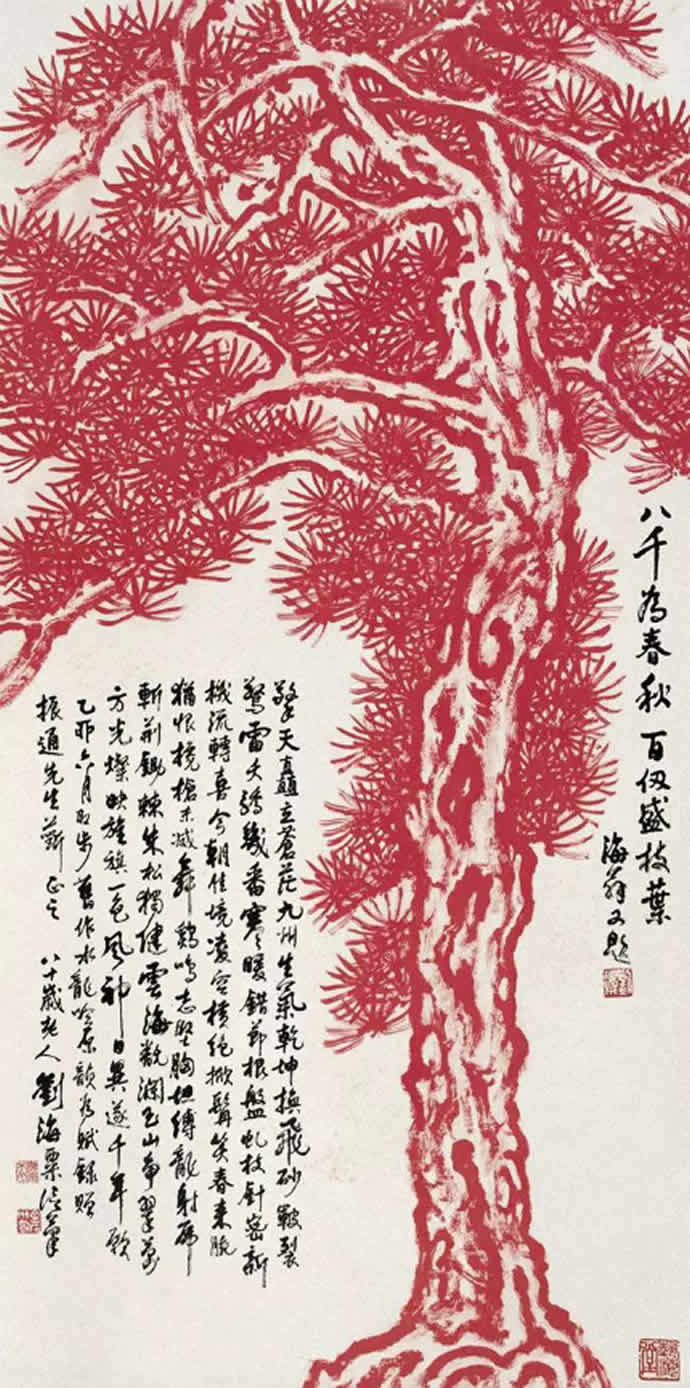 八千為春秋 百仭盛枝葉
海翁又題
擎天矗立蒼茫九州生氣乾坤撫飛砂皺裂
驚雷夭矯幾番寒暖錯節根盤虬枝針密新
機流轉喜今朝佳境凌空横絕掀髯笑春來脫
猶恨攙槍未滅舞鷄鳴志堅胸坦縛龍射虎
斬荊鋤棘朱松獨健雲海翻瀾玉山争翠萬
方光燦映旌旗一色風神日異遂千年願
乙卯六月初步舊作水龍吟原韻為賦録贈
振通先生蘄正之 八十歲老人劉海粟